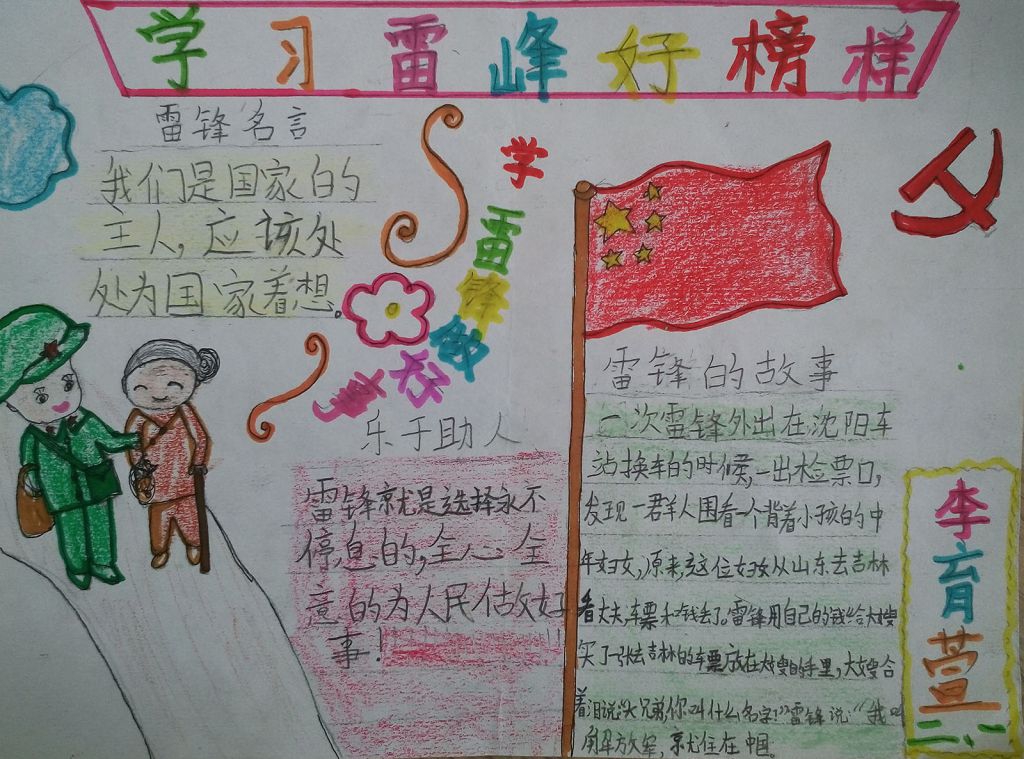 学习雷峰好榜样
雷锋名言
我们是国家的
主人,应该处
处为国家着想。
学雷锋做好事
乐于助人
雷锋就是选择永不
停息的,全心全
意的为人民做好
事!
雷锋的故事
一次雷锋外出在沈阳车
站换车的时候,一出检票口,
发现一群人围看一个背着小孩的中
年妇女,原来这位妇女从山东去吉林
看丈夫,车票和钱丢了。雷锋用自己的钱给大嫂
买了一张去吉林的车票放在大嫂的手里,大嫂含
着泪说:“大兄弟,你叫什么名字!”雷锋说:“我叫
解放军,就住在中国。
李育萱
二、一